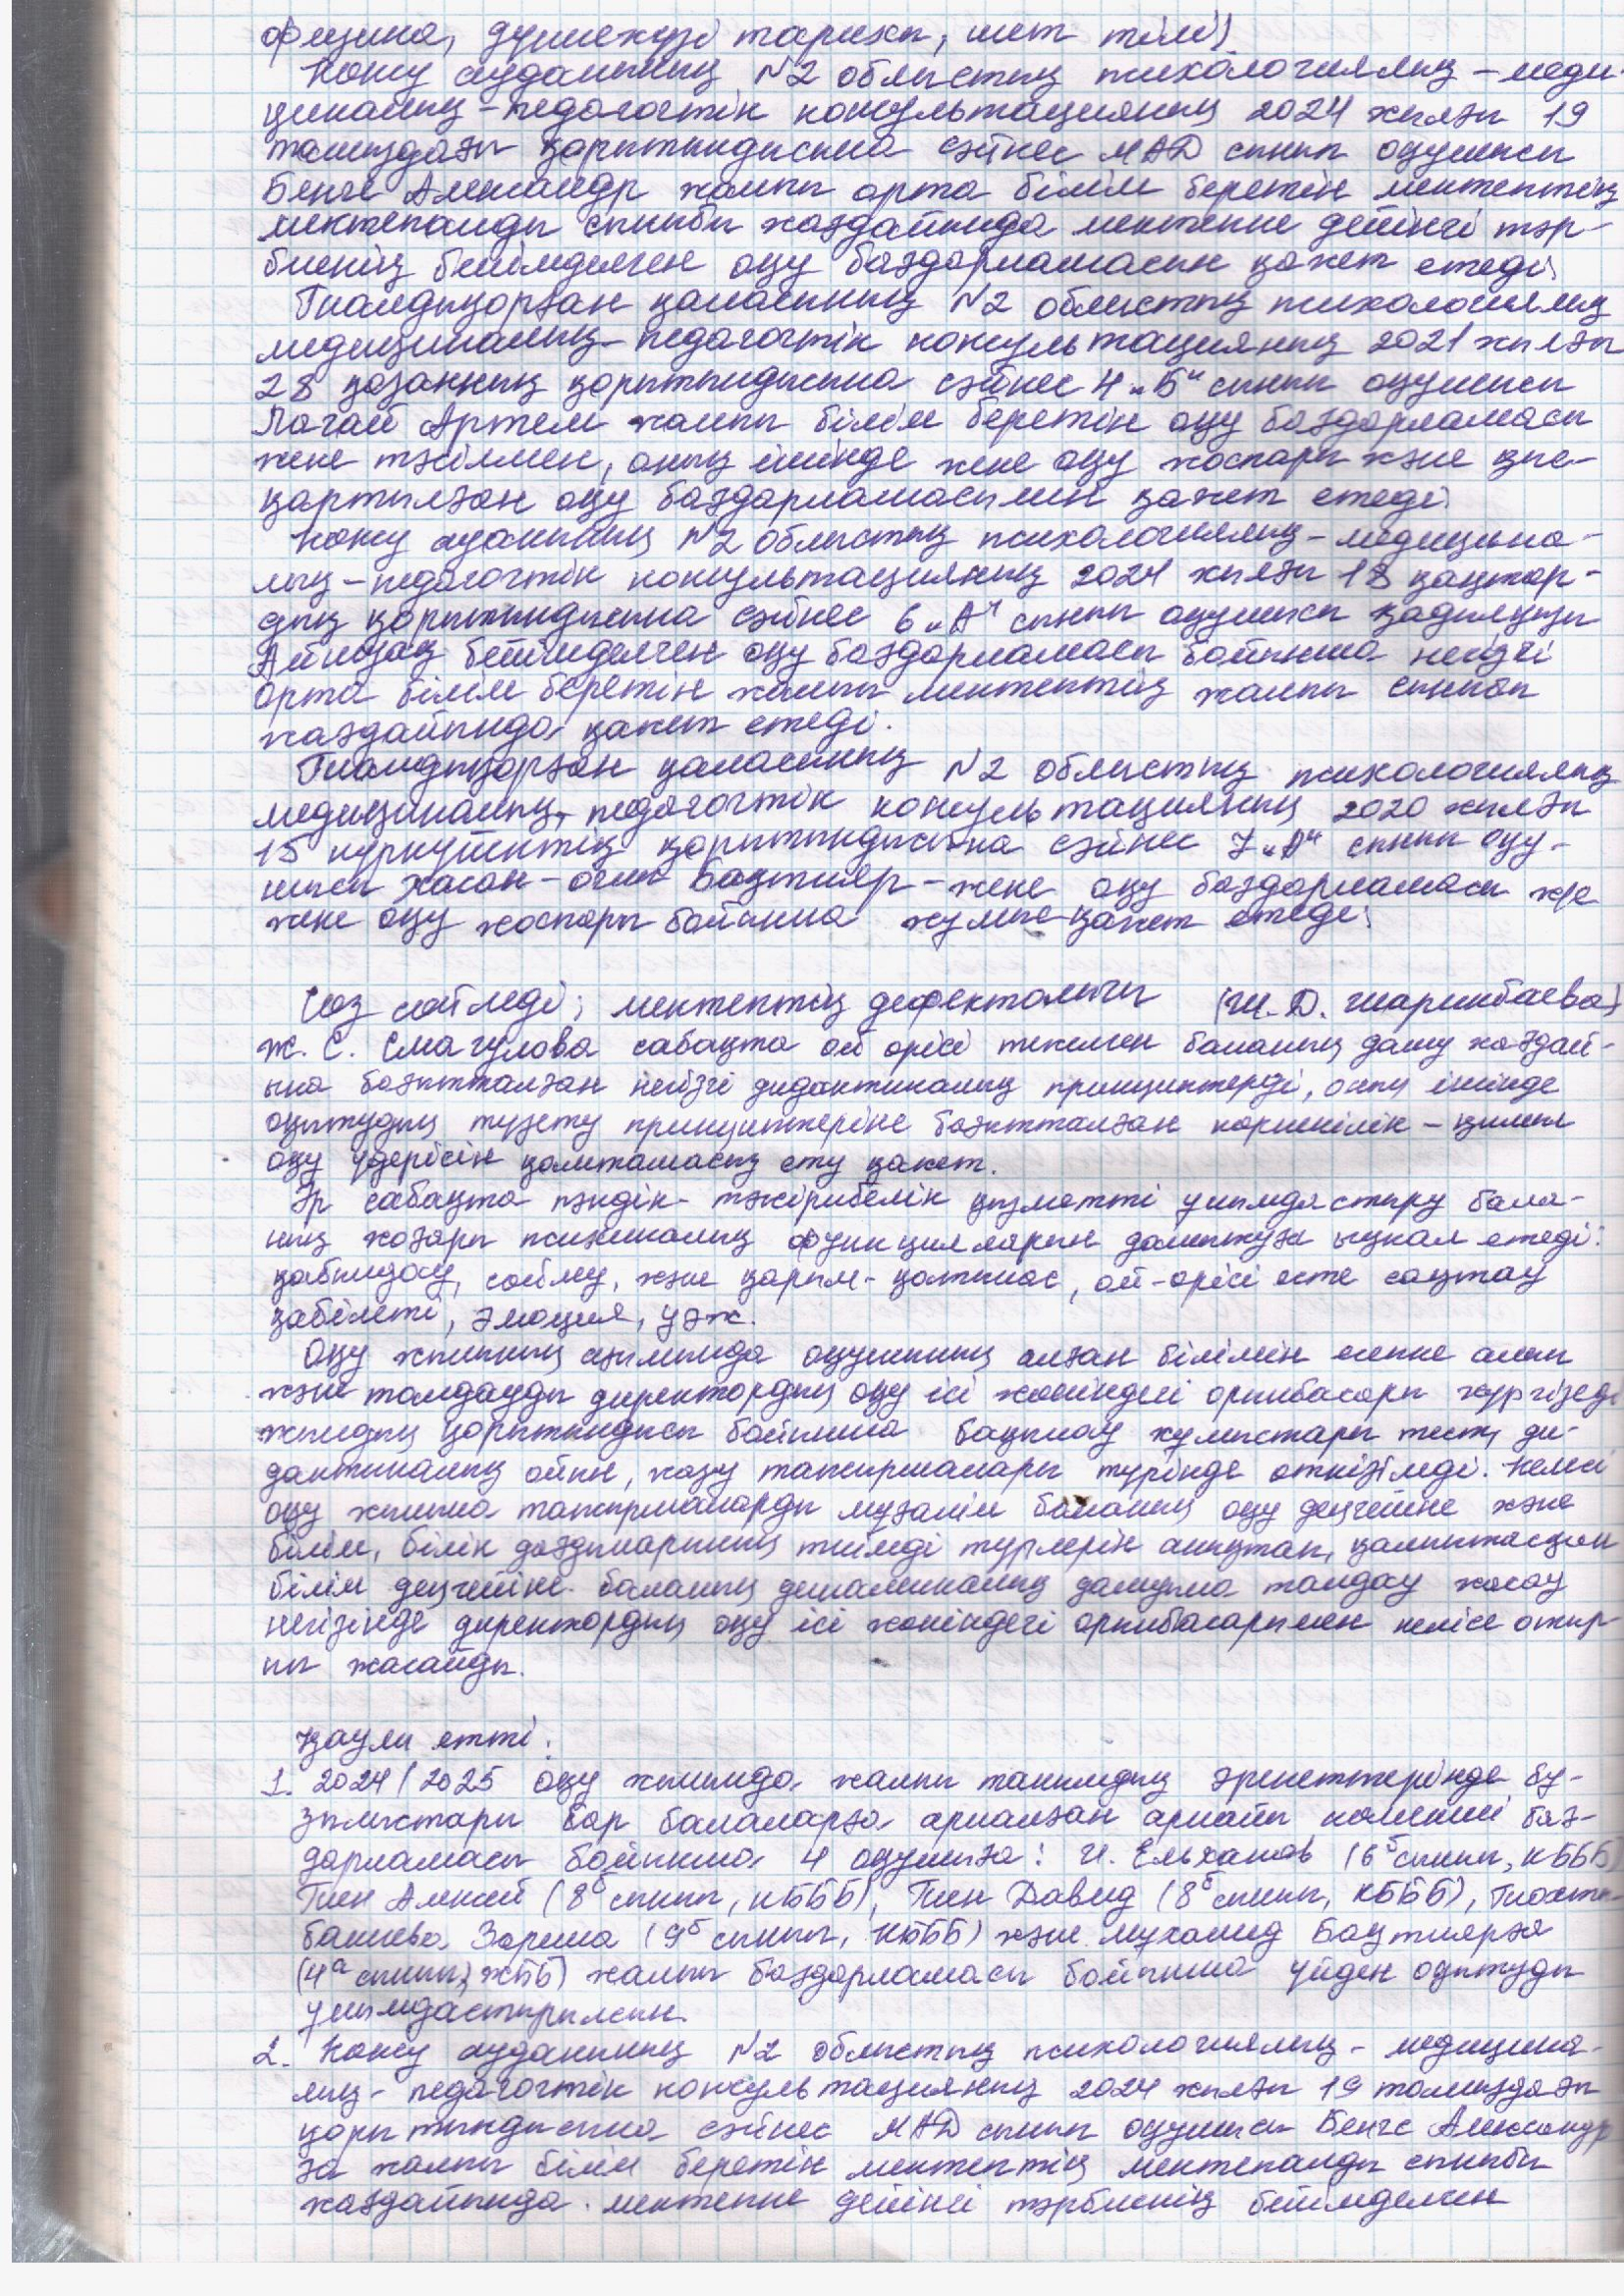 физика, дүниежүзі тарихы, шет тілі).
Көксу ауданының №2 облыстық психологиялық – меди-
циналық – педагогтік консультацияның 2024 жылғы 19
тамыздағы қорытындысына сәйкес МАД сынып оқушысы
Бенге Александр жалпы орта білім беретін мектептің
мектепалды сыныбы жағдайында мектепке дейінгі тәр-
биенің бейімделген оқу бағдарламасын қажет етеді;
Талдықорған қаласының №2 облыстық психологиялық
медициналық – педагогтік консультацияның 2021 жылғы
28 қазанның қорытындысына сәйкес 4 „Б" сынып оқушысы
Логай Артем жалпы білім беретін оқу бағдарламасы
жеке тәсілмен, оның ішінде жеке оқу жоспары және қыс-
қартылған оқу бағдарламасымен қажет етеді.
Көксу ауданының №2 облыстық психологиялық – медицина-
лық – педагогтік консультацияның 2024 жылғы 18 қаңтар-
дың қорытындысына сәйкес 6 „А" сынып оқушысы
бейімделген оқу бағдарламасы бойынша негізгі
орта білім беретін жалпы мектептің жалпы сыныбы
жағдайында қажет етеді.
Талдықорған қаласының №2 облыстық психологиялық
медициналық – педагогтік консультацияның 2020 жылғы
15 қыркүйектің қорытындысына сәйкес 7 „А" сынып оқу-
шысы Хасан – оглы Бақтияр – жеке оқу бағдарламасы ж/е
жеке оқу жоспары бойынша жұмыс қажет етеді;
Сөз сөйледі; мектептің дефектологы (Ш. Д. Шарипбаева)
Ж. С. Смагулова сабақта ой өрісі тежелген баланың даму жағдай-
ына бағытталған негізгі дидактикалық принциптерді, оның ішінде
оқытудың түзету принциптеріне бағытталған көрнекілік – қимыл
оқу үдерісін қамтамасыз ету қажет.
Әр сабақта пәндік – тәжірибелік қызметті ұйымдастыру бала-
ның жоғары психикалық функцияларын дамытуға ықпал етеді:
қабылдау, сөйлеу, және қарым – қатынас, ой – өрісі есте сақтау
қабілеті, эмоция, ұәж.
Оқу жылының аяғында оқушының алған білімін есепке алып
және талдауды директордың оқу ісі жөніндегі орынбасары жүргізеді
жылдың қорытындысы бойынша бақылау жұмыстары тест, ди-
дактикалық ойын, жазу тапсырмалары түрінде өткізіледі. Келесі
оқу жылына тапсырмаларды мұғалім баланың оқу деңгейіне және
білім, білік дағдыларының тиімді түрлерін анықтап, қалыптасқан
білім деңгейіне баланың динамикалық дамуына талдау жасау
негізінде директордың оқу ісі жөніндегі орынбасарымен келісе отыр-
ып жасайды.
Қаулы етті:
1. 2024/2025 оқу жылында жалпы танымдық әрекеттерінде бұ-
зылыстары бар балаларға арналған арнайы бағ-
дарламасы бойынша 4 оқушыға: И. Ельханов (6б сынып, КБББ)
Тен Алексей (8б сынып, КБББ), Тен Давид (8б сынып, КБББ), Тохта-
банова Зарина (9б сынып, КБББ) және Мухамед Бақтиярға
(4а сынып, ЖББ) жалпы бағдарламасы бойынша үйден оқытуды
ұйымдастырылсын.
2. Көксу ауданының №2 облыстық психологиялық – медицина-
лық – педагогтік консультацияның 2024 жылғы 19 тамыздағы
қорытындысына сәйкес МАД сынып оқушысы Бенге Александр
ға жалпы білім беретін мектептің мектепалды сыныбы
жағдайында мектепке дейінгі тәрбиенің бейімделген